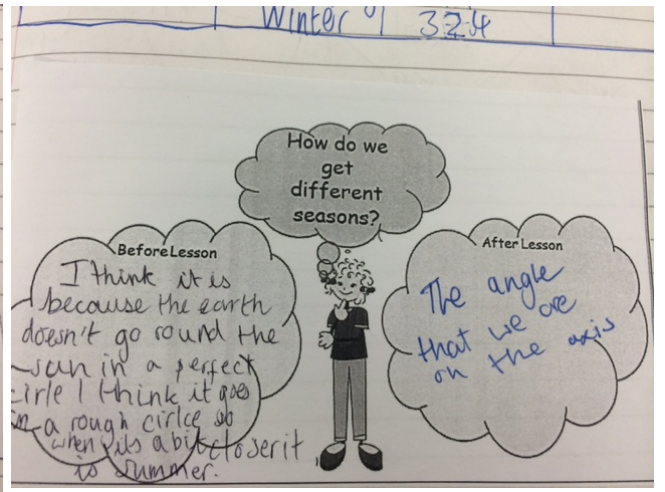 Winter
How do we
get
different
seasons?
Before Lesson
I think it is
because the earth
doesn't go round the
sun in a perfect
cirle I think it goes
in a rough cirlce so
when its a bit closer it
is summer.
After Lesson
The angle
that we are
on the axis